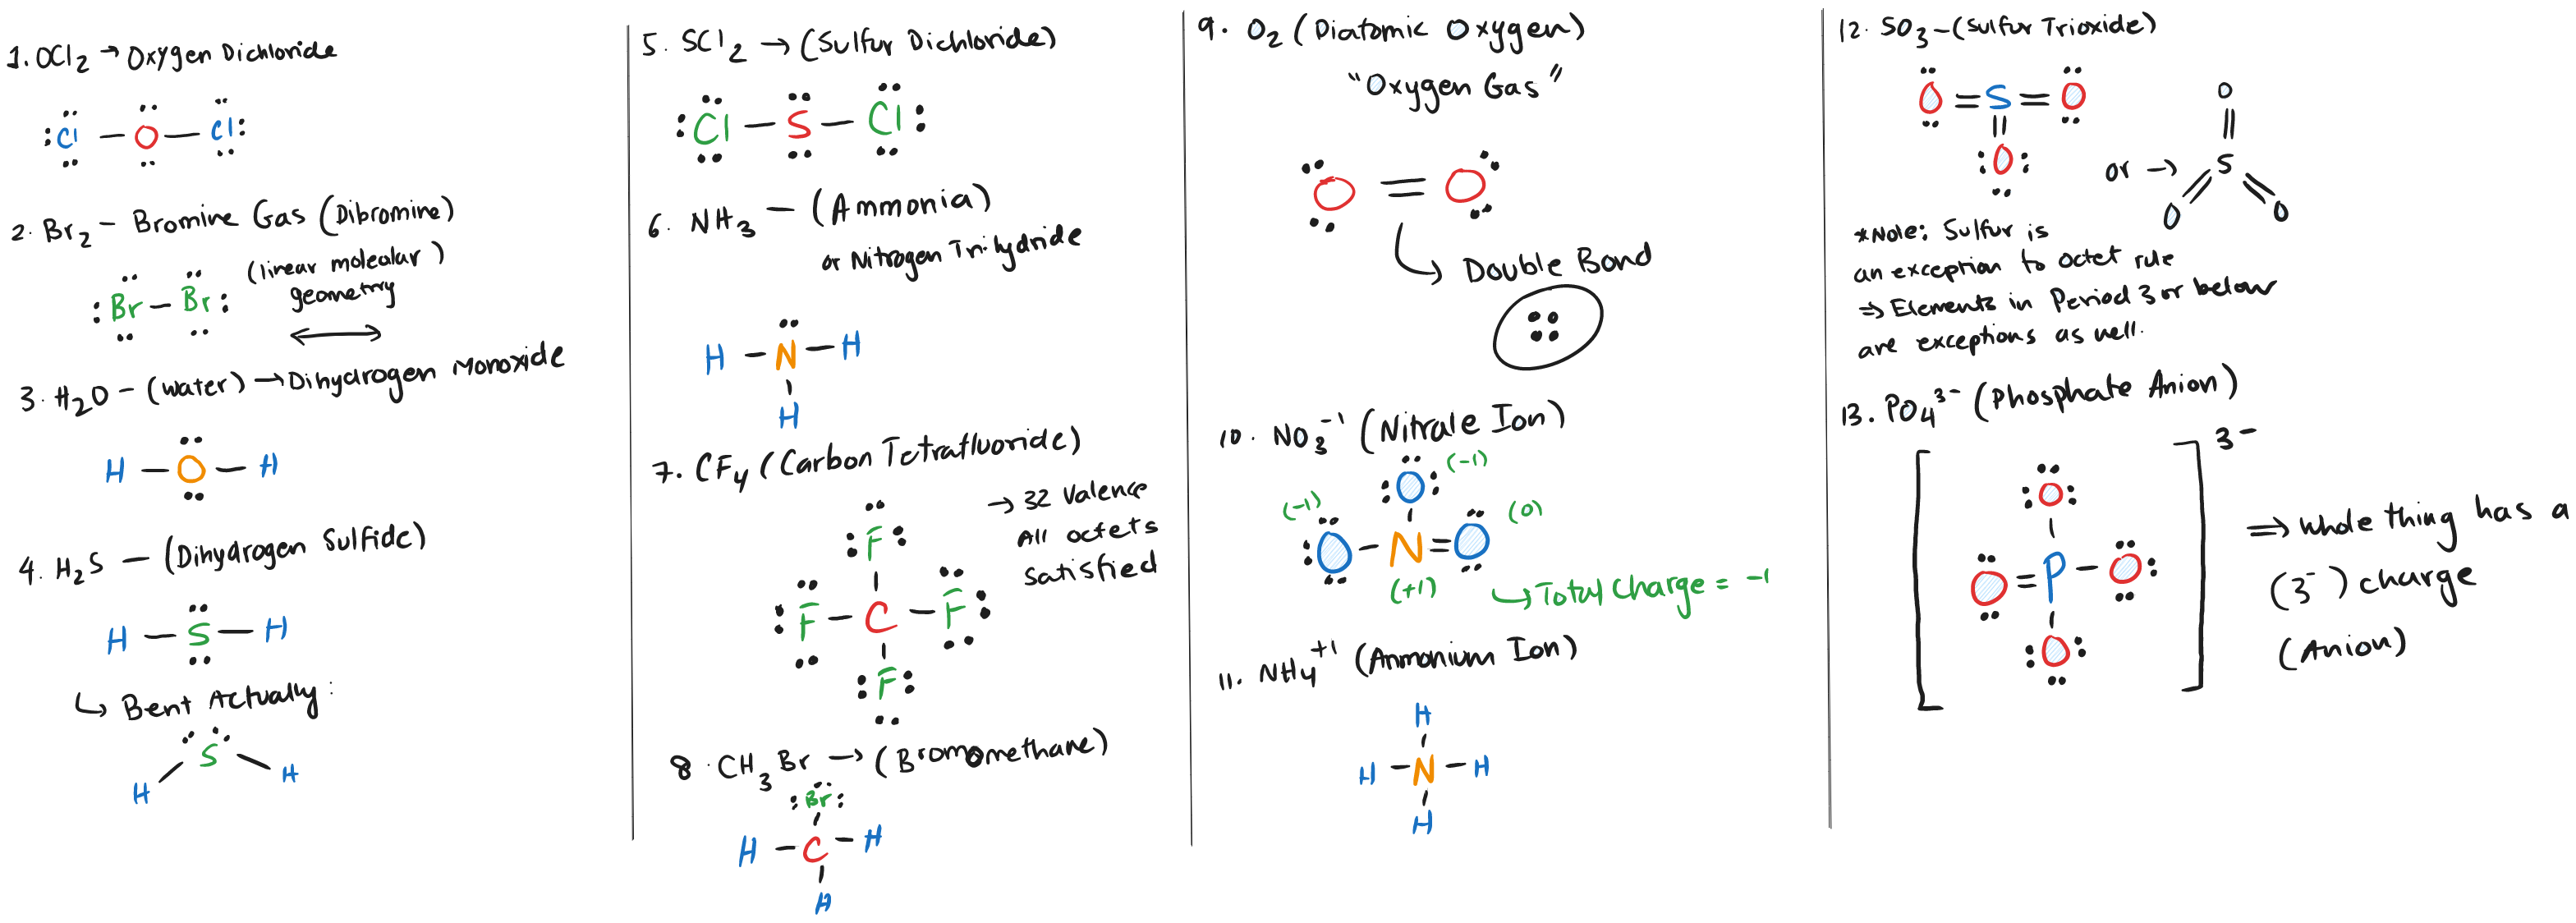 1. OCl2 → Oxygen Dichloride
:Cl — O — Cl:
2. Br2 – Bromine Gas (Dibromine)
(linear molecular)
geometry
:Br – Br:
3. H2O – (water) → Dihydrogen Monoxide
H — O — H
4. H2S — (Dihydrogen Sulfide)
H — S — H
↳ Bent Actually:
S
H H
5. SCl2 → (Sulfur Dichloride)
:Cl — S — Cl:
6. NH3 — (Ammonia)
or Nitrogen Trihydride
H — N — H
H
7. CF4 (Carbon Tetrafluoride)
→ 32 Valence
All octets
satisfied
:F:
:F — C — F:
:F:
8. CH3Br → (Bromomethane)
:Br:
H — C — H
H
9. O2 (Diatomic Oxygen)
"Oxygen Gas"
O = O
↳ Double Bond
::
10. NO3⁻¹ (Nitrate Ion)
:O: (-1)
(-1) (0)
:O — N = O
(+1)
↳ Total Charge = -1
11. NH4⁺¹ (Ammonium Ion)
H
H — N — H
H
12. SO3 – (Sulfur Trioxide)
O = S = O
:O:
or →
O
S
O O
*Note: Sulfur is
an exception to octet rule
⇒ Elements in Period 3 or below
are exceptions as well.
13. PO4³⁻ (Phosphate Anion)
3-
:O:
O = P — O:
:O:
⇒ Whole thing has a
(3⁻) charge
(Anion)